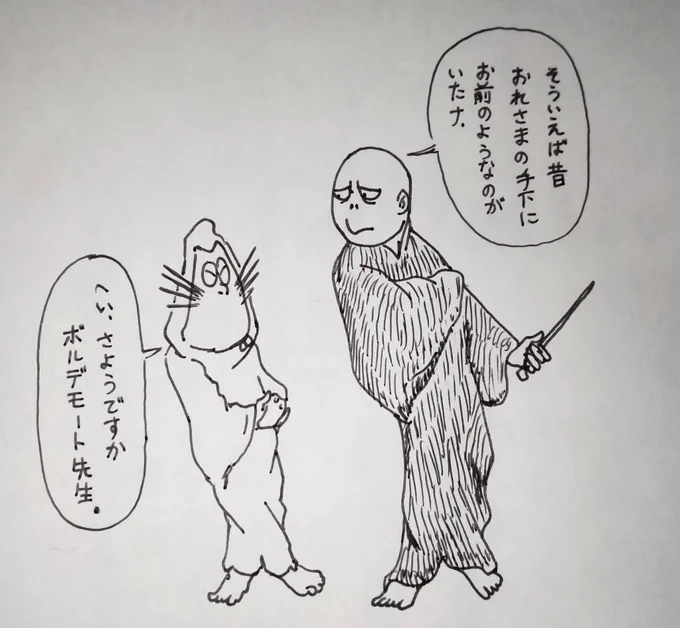 そういえば昔
おれさまの手下に
お前のようなのが
いたナ.
へい、さようですか
ボルデモート先生。